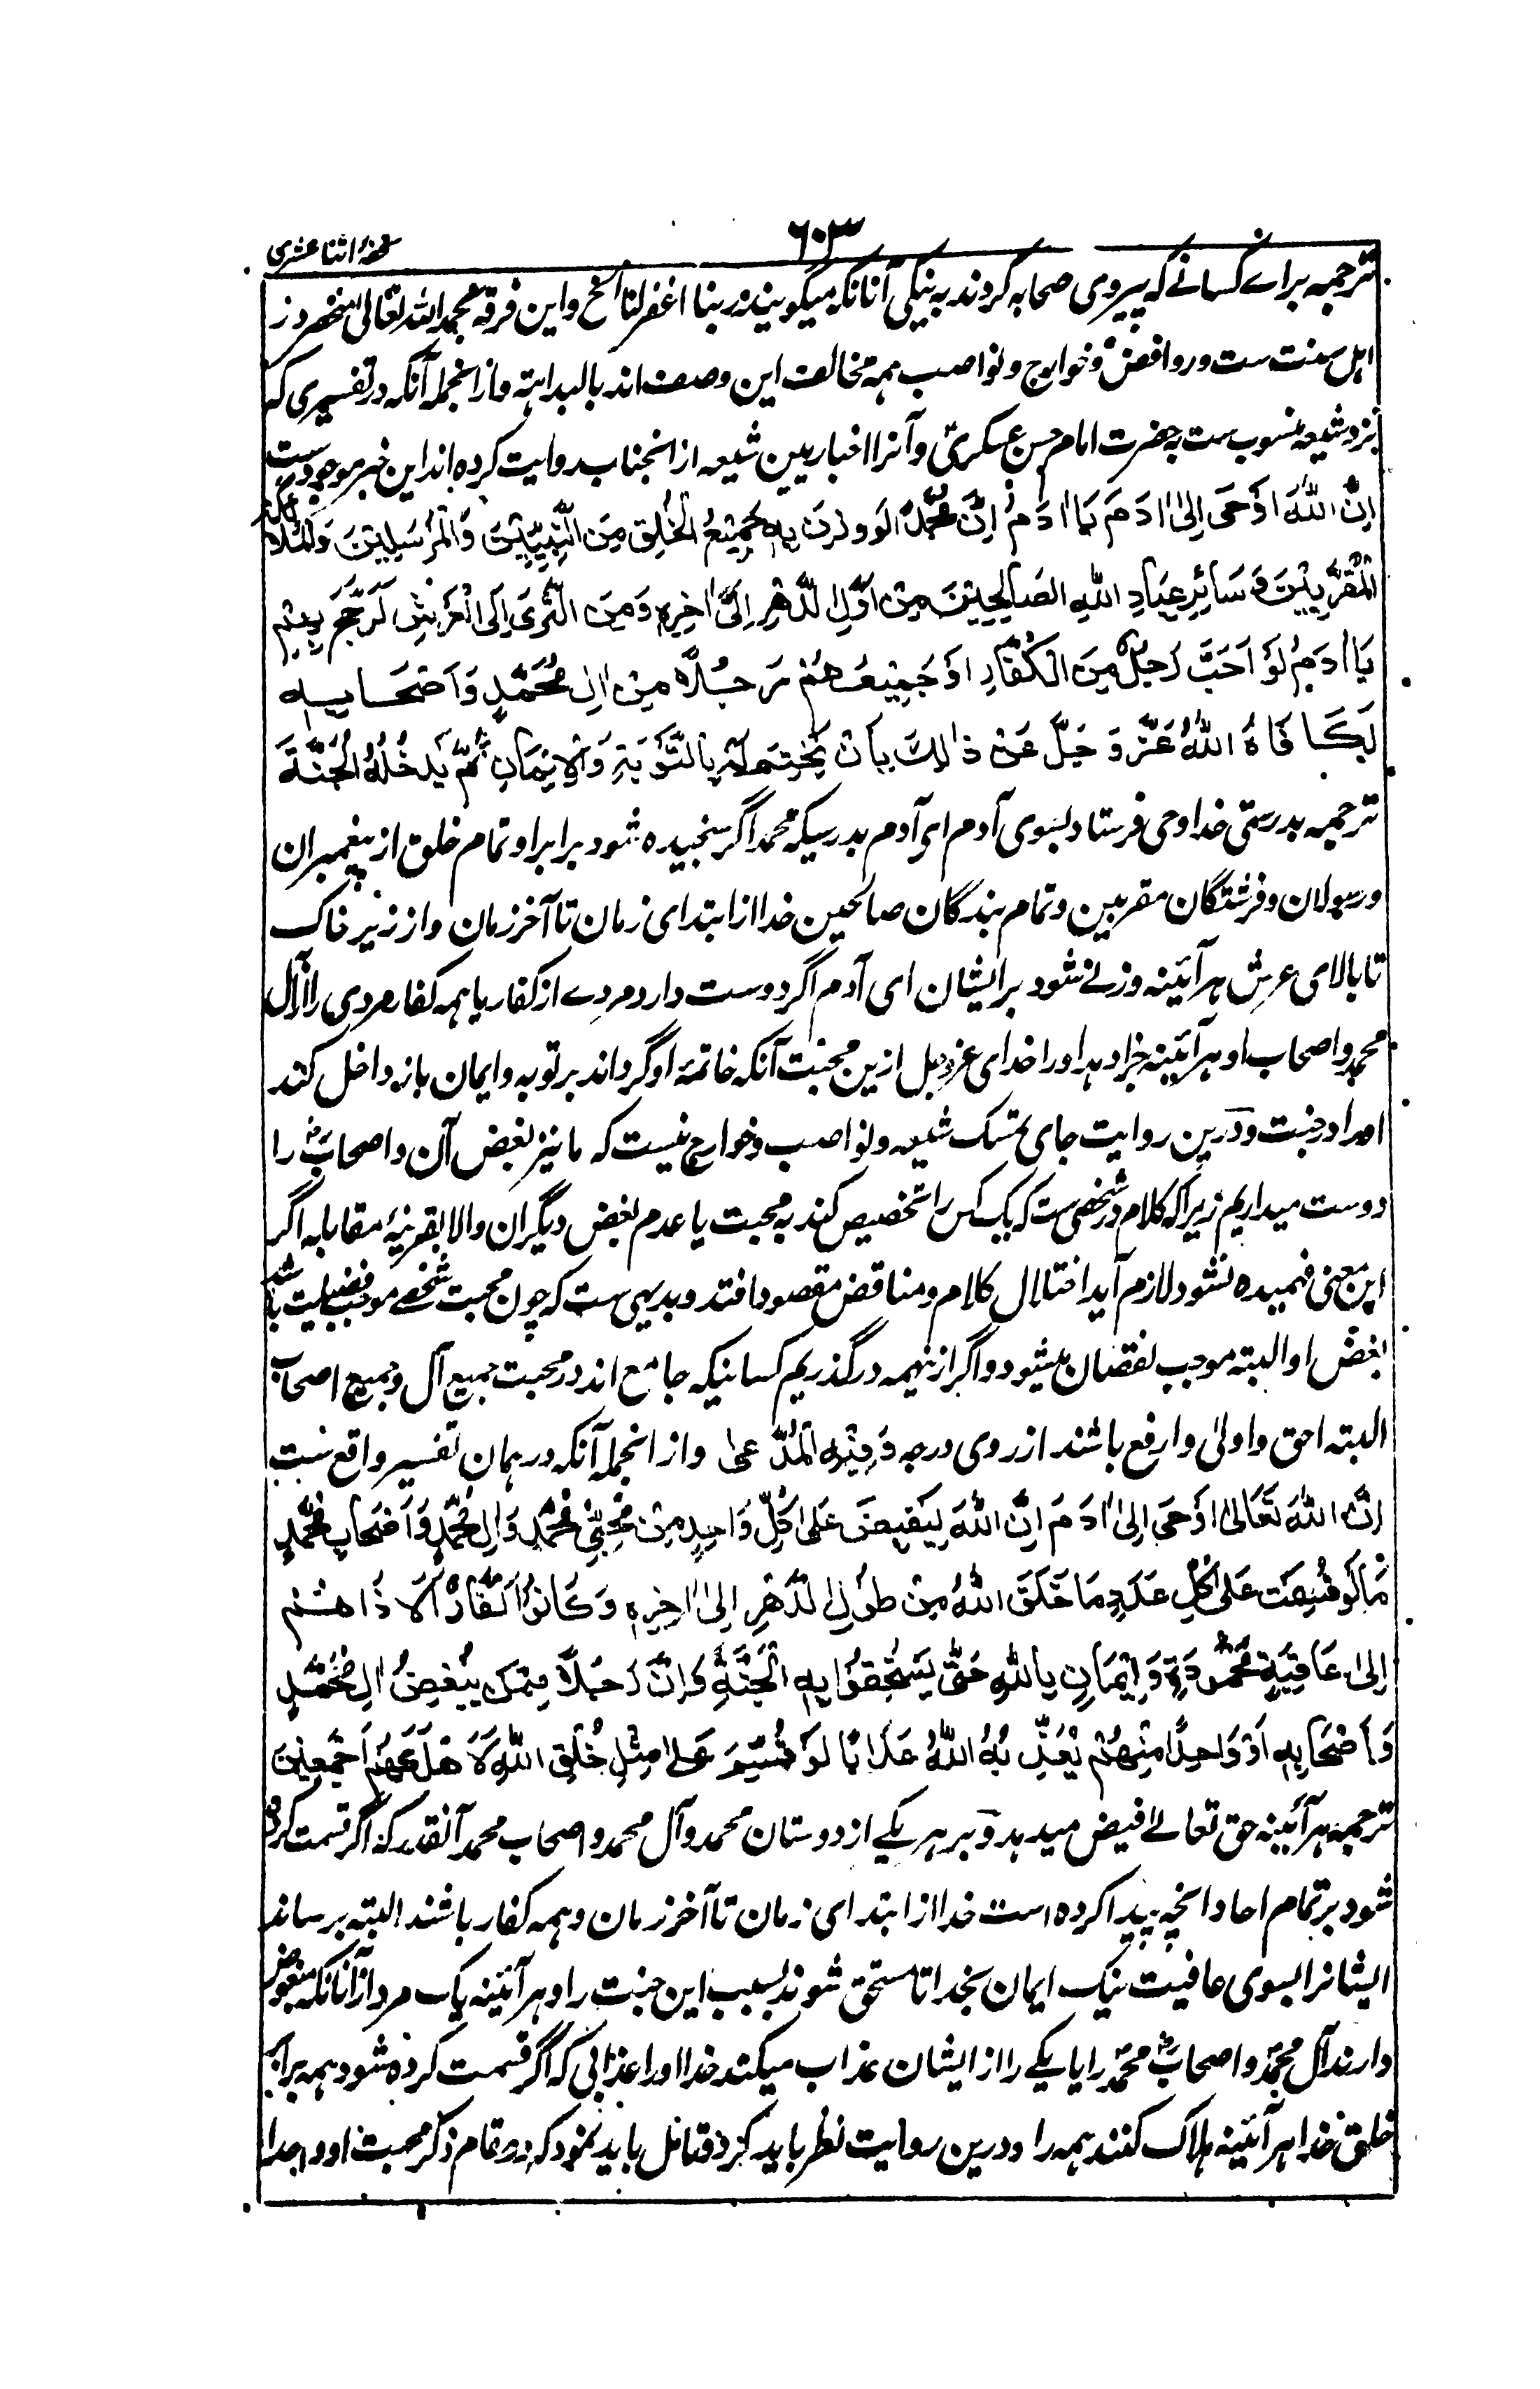 تحفۂ اثنا عشری
۶۰۳
ترجمہ براے کسانے کہ پیروی صحابہ کردند بہ نیکی آنانکہ میگویند ربنا اغفرلنا الخ و این فرقہ بحمد اللہ تعالی منحصر در
اہل سنت ست و روافض و خوارج و نواصب ہمہ مخالف این وصف اند بالبداہتہ و ازانجملہ آنکہ در تفسیری کہ
نزد شیعہ منسوب ست بہ حضرت امام حسن عسکریؑ و آنرا اخباریین شیعہ از انجناب روایت کردہ اند این خبر موجود ست
اِنَّ اللّٰهَ اَوْحٰی اِلٰی اٰدَمَ یَا اٰدَمُ اِنَّ مُحَمَّدًا لَوْ وُزِنَ بِهٖ جَمِیْعُ الْخَلْقِ مِنَ النَّبِیِّیْنَ وَالْمُرْسَلِیْنَ وَالْمَلَائِکَةِ
الْمُقَرَّبِیْنَ وَسَائِرِ عِبَادِ اللّٰهِ الصَّالِحِیْنَ مِنْ اَوَّلِ الدَّهْرِ اِلٰی اٰخِرِهٖ وَمِنَ الثَّرٰی اِلَی الْعَرْشِ لَرَجَحَ بِهِمْ
یَا اٰدَمُ لَوْ اَحَبَّ رَجُلٌ مِنَ الْکُفَّارِ اَوْ جَمِیْعُهُمْ رَجُلًا مِنْ اٰلِ مُحَمَّدٍ وَاَصْحَابِهٖ
لَکَافَاهُ اللّٰهُ عَزَّ وَجَلَّ عَنْ ذَالِكَ بِاَنْ یَخْتِمَ لَهٗ بِالتَّوْبَةِ وَالْاِیْمَانِ ثُمَّ یُدْخِلُهُ الْجَنَّةَ
ترجمہ بدرستی خدا وحی فرستاد بسوی آدم ای آدم بدرستیکہ محمد اگر سنجیدہ شود برابر او تمام خلق از پیغمبران
و رسولان و فرشتگان مقربین و تمام بندگان صالحین خدا از ابتدای زمان تا آخر زمان و از زیر خاک
تا بالای عرش ہر آئینہ وزنے شود بر ایشان ای آدم اگر دوست دارد مردے از کفار یا ہمہ کفار مردی را از آل
محمد و اصحاب او ہر آئینہ جزا دہد او را خدای عز و جل ازین محبت آنکہ خاتمۂ او گرداند بر توبہ و ایمان باز داخل کند
او را در جنت و درین روایت جای تمسک شیعہ و نواصب و خوارج نیست کہ ما نیز بعض آل و اصحابؓ را
دوست میداریم زیراکہ کلام در شخصی ست کہ یک کس را تخصیص کند بہ محبت با عدم بغض دیگران والا بقرینۂ مقابلہ اگر
این معنی فہمیدہ نشود لازم آید اختلال کلام و مناقض مقصود افتد و بدیہی ست کہ چون محبت شخصے موجب فضیلت باشد
بغض او البتہ موجب نقصان میشود و اگر ازینہمہ درگذریم کسانیکہ جامع اند در محبت جمیع آل و جمیع اصحاب
البتہ احق و اولٰی و ارفع باشند از روی درجہ وَفِیْهِ الْمُدَّعٰی و از انجملہ آنکہ در ہمان تفسیر واقع ست
اِنَّ اللّٰهَ تَعَالٰی اَوْحٰی اِلٰی اٰدَمَ اِنَّ اللّٰهَ لَیَفِیْضُ عَلٰی کُلِّ وَاحِدٍ مِنْ مُحِبِّیْ مُحَمَّدٍ وَاٰلِ مُحَمَّدٍ وَاَصْحَابِ مُحَمَّدٍ
مَا لَوْ قُسِمَتْ عَلٰی کُلِّ عَدَدِ مَا خَلَقَ اللّٰهُ مِنْ طُوْلِ الدَّهْرِ اِلٰی اٰخِرِهٖ وَکَانُوْا کُفَّارًا لَاَدَّاهُمْ
اِلٰی عَاقِبَةٍ مَحْمُوْدَةٍ وَاِیْمَانٍ بِاللّٰهِ حَتّٰی یَسْتَحِقُّوْا بِهِ الْجَنَّةَ وَاِنَّ رَجُلًا مِمَّنْ یُبْغِضُ اٰلَ مُحَمَّدٍ
وَاَصْحَابِهٖ اَوْ وَاحِدًا مِنْهُمْ یُعَذِّبُهُ اللّٰهُ عَذَابًا لَوْ قُسِّمَ عَلٰی مِثْلِ خَلْقِ اللّٰهِ لَاَهْلَکَهُمْ اَجْمَعِیْنَ
ترجمہ ہر آئینہ حق تعالےٰ فیض میدہد بر ہر یکے از دوستان محمد و آل محمد و اصحاب محمد آنقدر کہ اگر قسمت کردہ
شود بر تمام احاد انچہ پیدا کردہ است خدا از ابتدای زمان تا آخر زمان و ہمہ کفار باشند البتہ برساند
ایشانرا بسوی عافیت نیک ایمان بخدا تا مستحق شوند بسبب این جنت را و ہر آئینہ یک مرد از آنانکہ مبغوض
دارند آل محمدؐ و اصحابؓ محمدؐ را یا یکے را از ایشان عذاب میکند خدا او را عذابی کہ اگر قسمت کردہ شود ہمہ برابر
خلق خدا ہر آئینہ ہلاک کنند ہمہ را و درین روایت نظر باید کرد و تامل باید نمود کہ در مقام ذکر محبت او واحدا